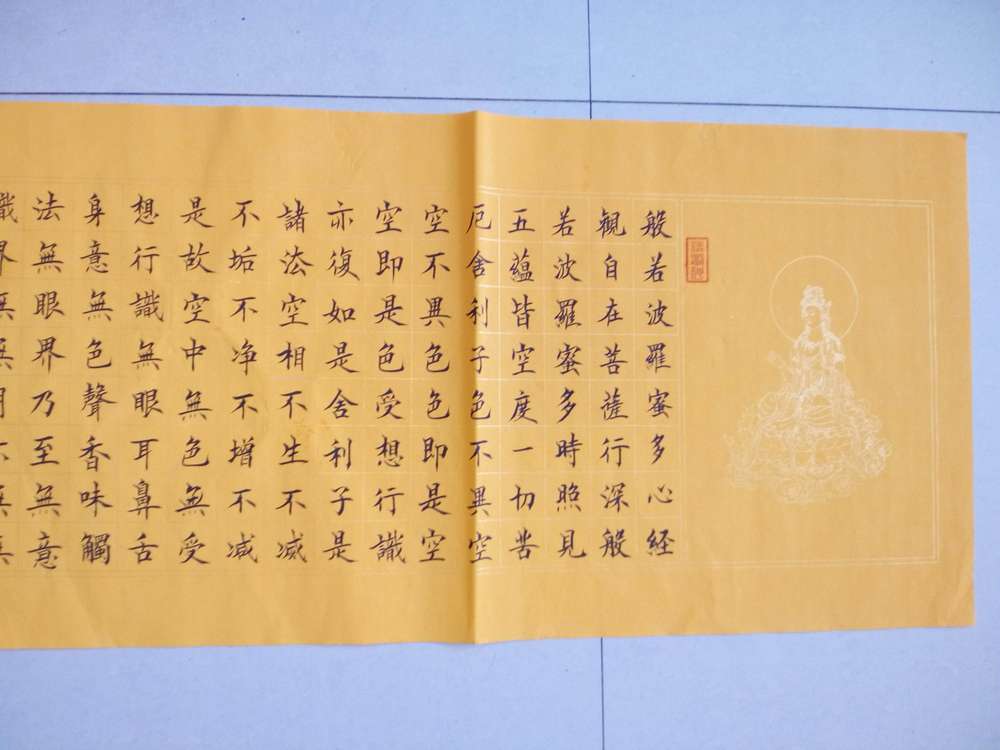 般若波羅蜜多心経
觀自在菩薩行深般
若波羅蜜多時照見
五蘊皆空度一切苦
厄舍利子色不異空
空不異色色即是空
空即是色受想行識
亦復如是舍利子是
諸法空相不生不滅
不垢不净不增不减
是故空中無色無受
想行識無眼耳鼻舌
身意無色聲香味觸
法無眼界乃至無意
識界無無明不無無